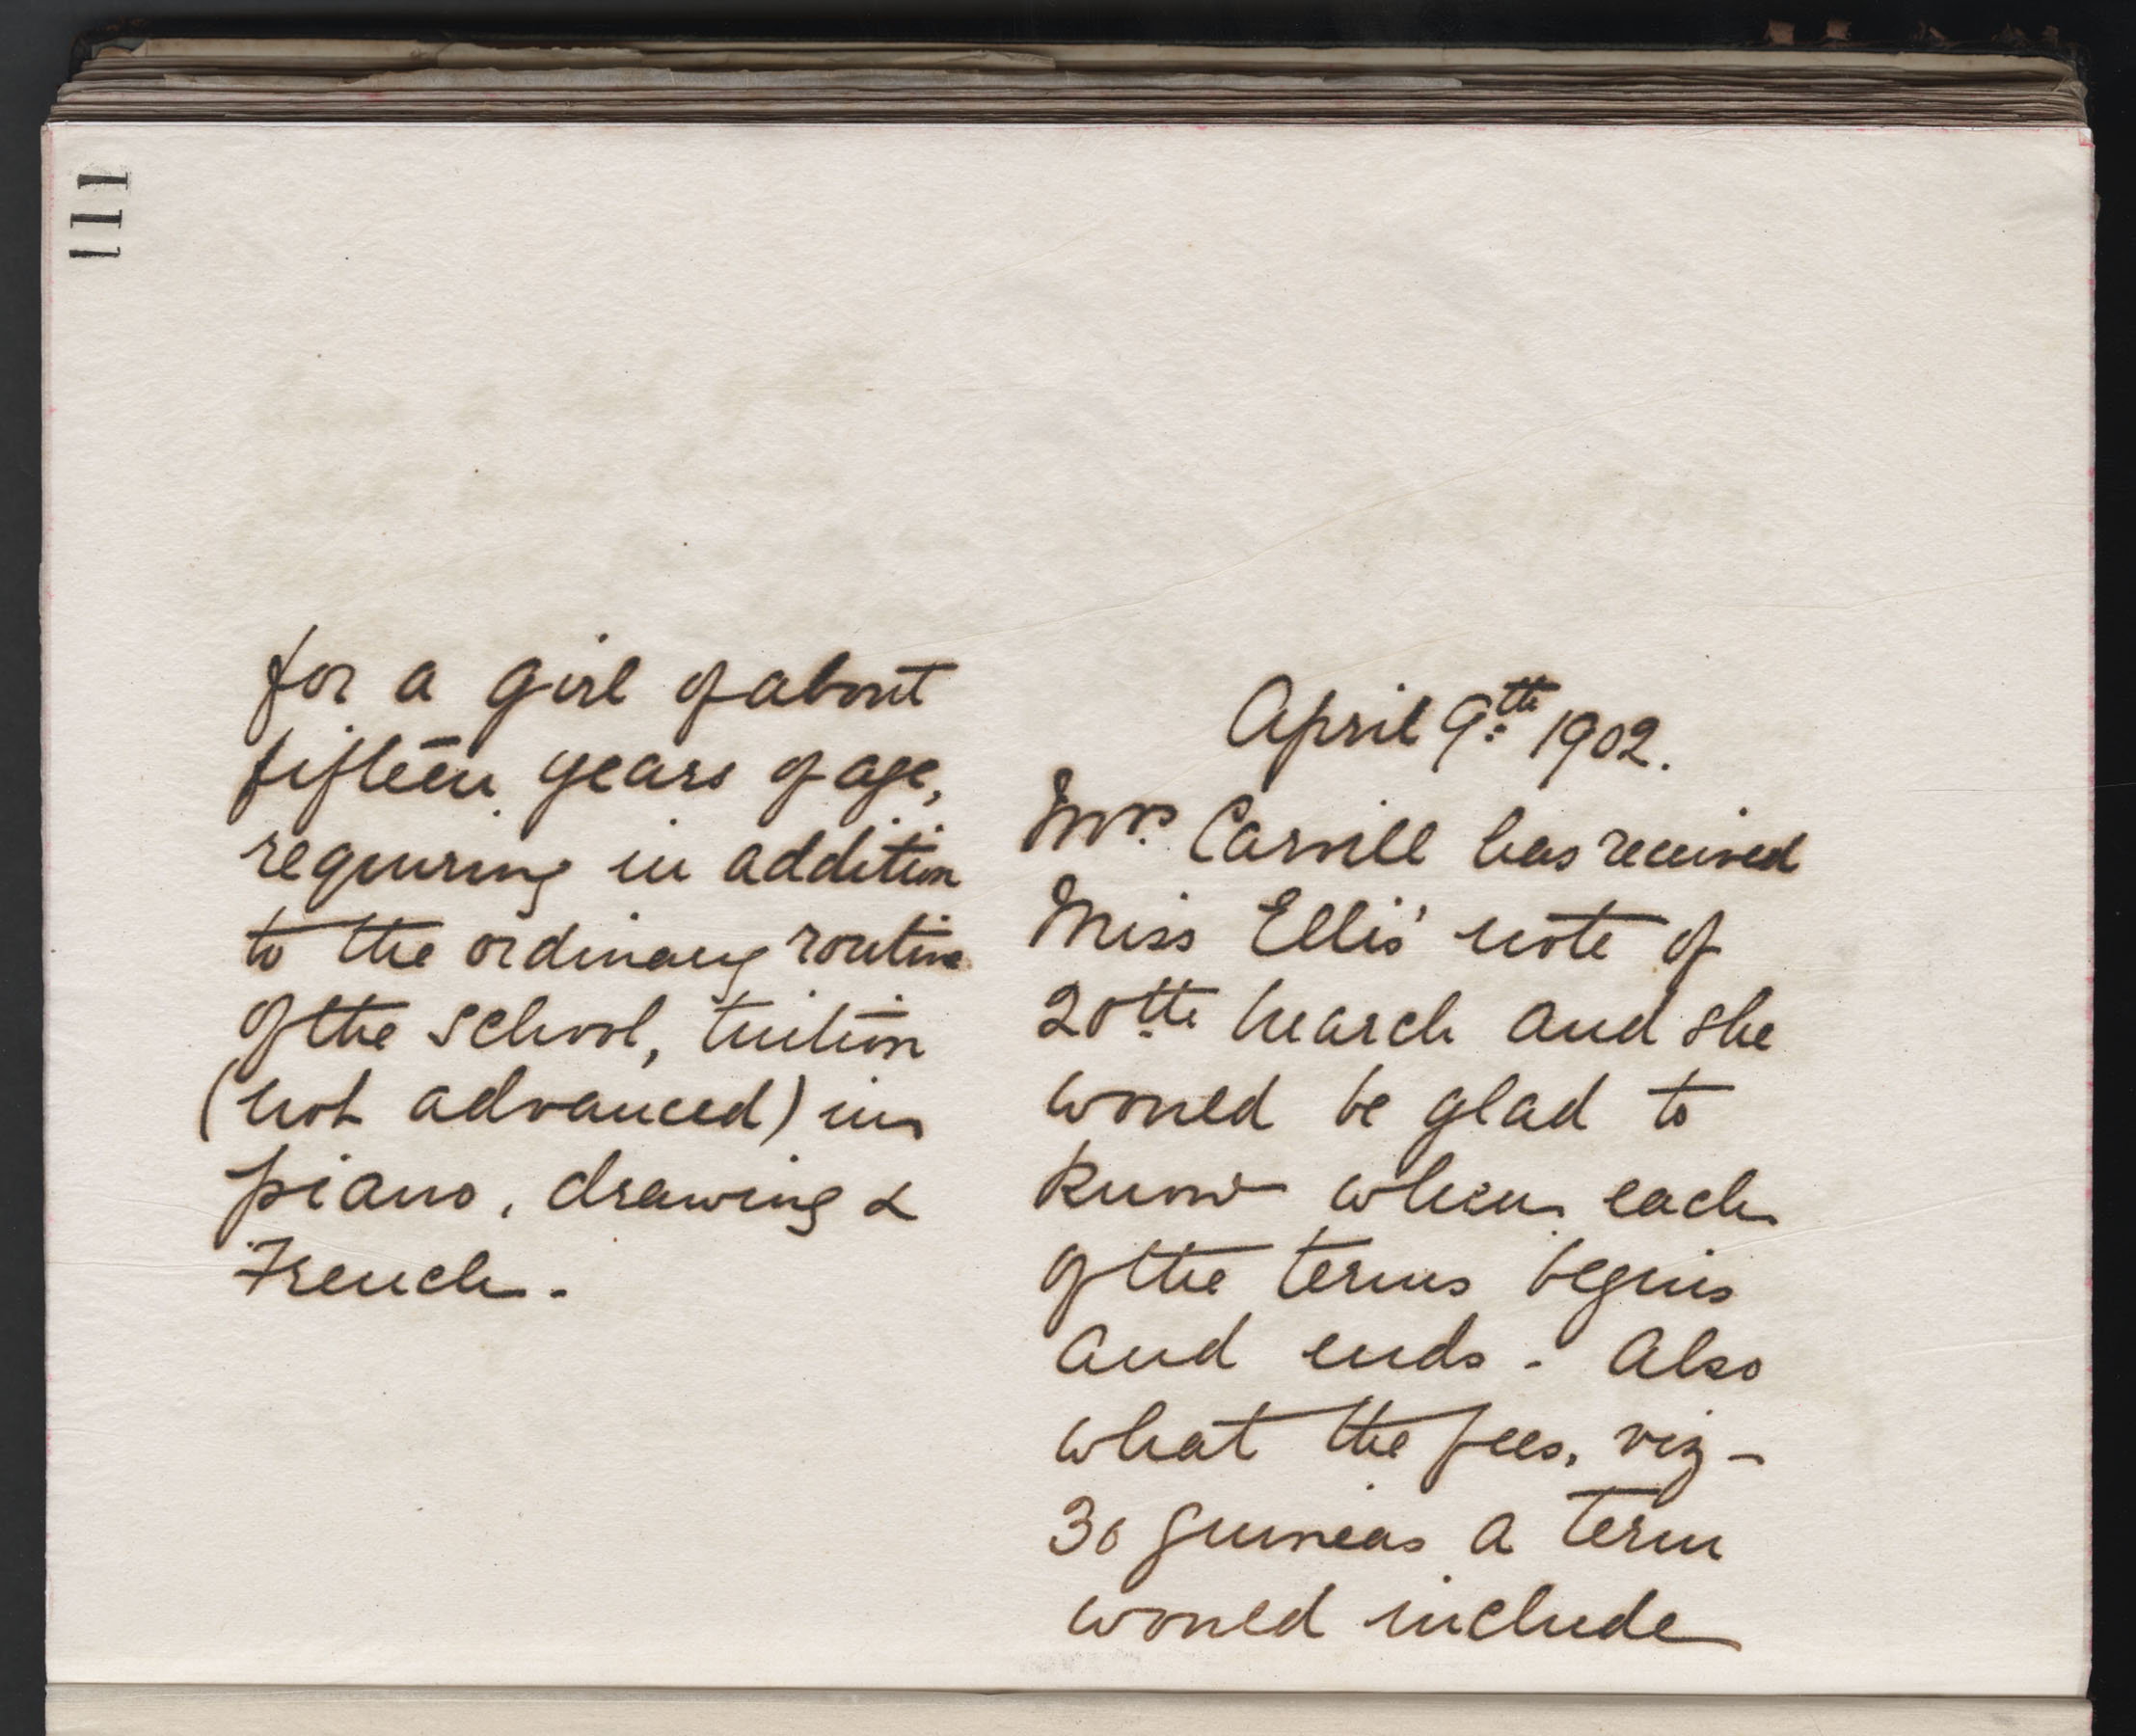 111
April 9th 1902.
Mrs. Carvill has received
Miss Ellis' note of
20th March and she
would be glad to
know when each
of the terms begins
and ends - Also
what the fees, viz -
30 guineas a term
would include
for a girl of about
fifteen years of age,
requiring in addition
to the ordinary routine
of the school, tuition
(not advanced) in
piano, drawing &
French -